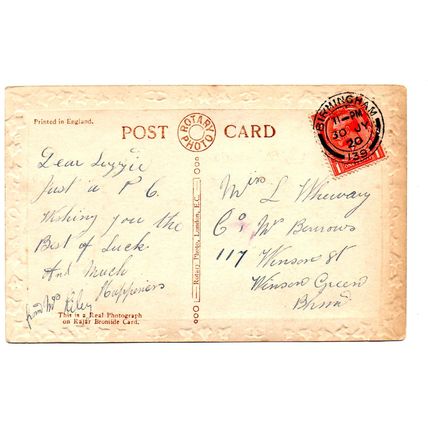 Printed in England.
POST CARD
ROTARY PHOTO
BIRMINGHAM
11-PM
30 JY
20
139
Dear Lizzie
Just a P C
Wishing you the
Best of Luck
And much
Happiness
from Mrs
This is a Real Photograph
on Rajar Bromide Card.
Rotary Photo, London, E.C.
Miss L Wheway
C/o Mr Burrows
117 Winson St
Winson Green
Bham